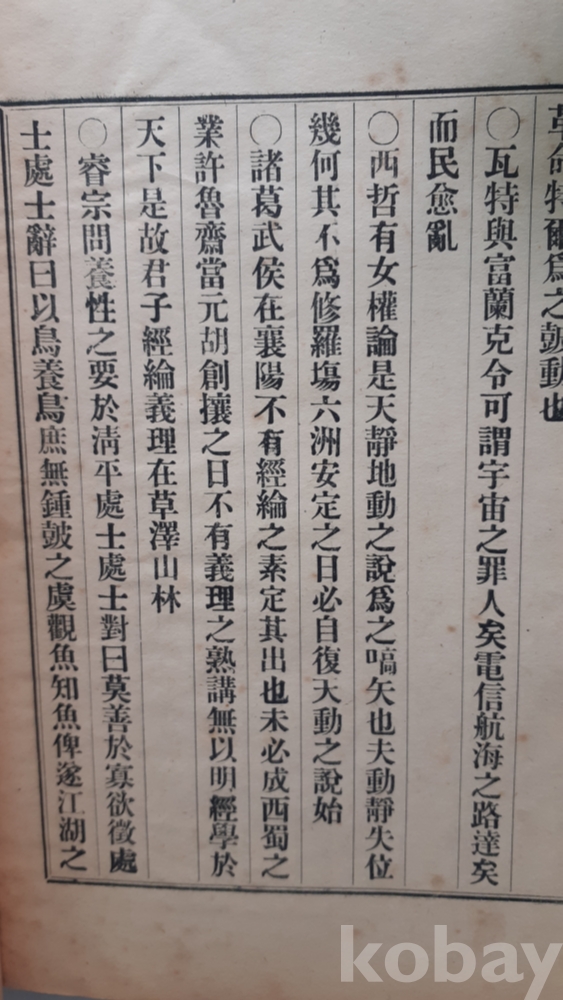 革命特爾爲之皷動也
〇瓦特與富蘭克令可謂宇宙之罪人矣電信航海之路達矣
而民愈亂
〇西哲有女權論是天靜地動之說爲之嚆矢也夫動靜失位
幾何其不爲修羅塲六洲安定之日必自復天動之說始
〇諸葛武侯在襄陽不有經綸之素定其出也未必成西蜀之
業許魯齋當元胡創攘之日不有義理之熟講無以明經學於
天下是故君子經綸義理在草澤山林
〇睿宗問養性之要於淸平處士處士對曰莫善於寡欲徵處
士處士辭曰以鳥養鳥庶無鍾皷之虞觀魚知魚俾遂江湖之
kobay